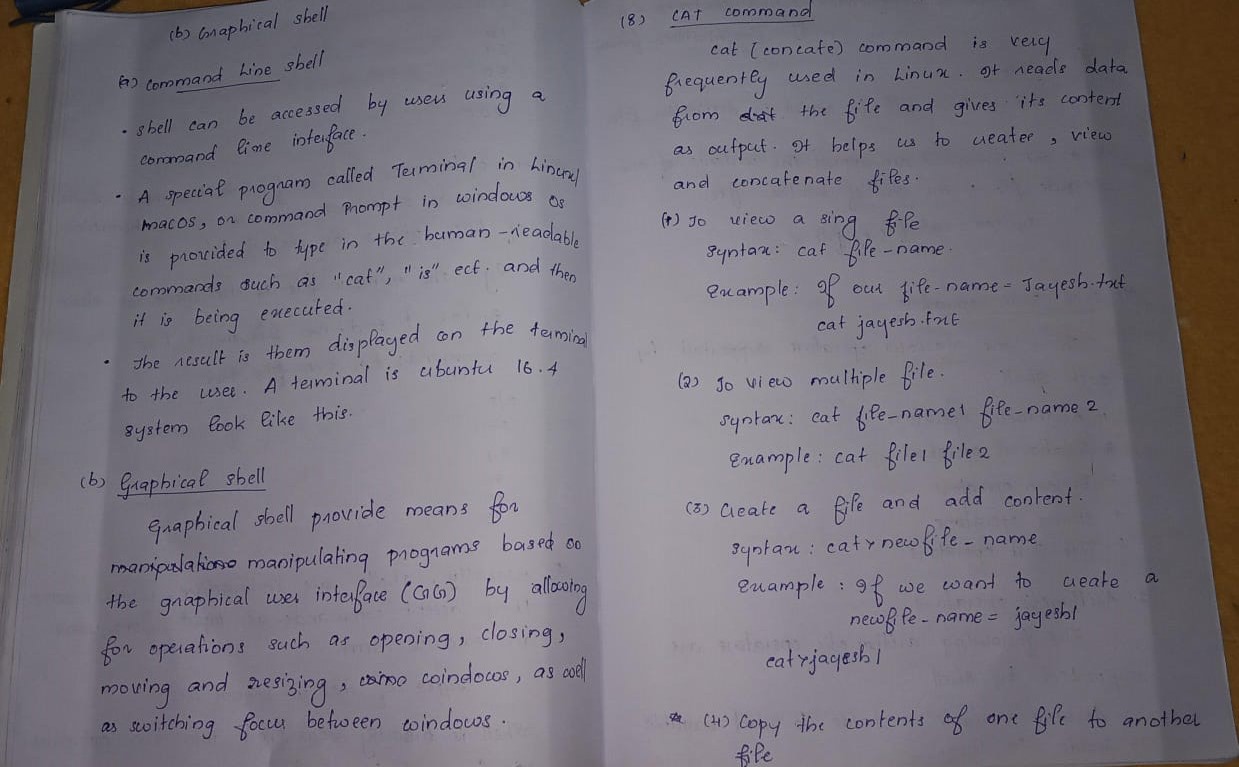 (b) Graphical shell
(a) command Line shell
• shell can be accessed by users using a
command line interface.
• A special program called Terminal in Linux/
macOS, or command Prompt in windows OS
is provided to type in the human-readable
commands such as "cat", "is" ect. and then
it is being executed.
• The result is them displayed on the terminal
to the user. A terminal is ubuntu 16.4
system look like this.
(b) Graphical shell
Graphical shell provide means for
manipulating programs based on
the graphical user interface (GG) by allowing
for operations such as opening, closing,
moving and resizing, windows, as well
as switching focus between windows.
(8) CAT command
cat (concate) command is very
frequently used in Linux. It reads data
from the file and gives its content
as output. It helps us to creater, view
and concatenate files.
(1) To view a sing file
Syntax: cat file-name.
Example: If our file-name = Jayesh.txt
cat jayesh.txt
(2) To view multiple file.
Syntax: cat file-name1 file-name 2.
Example: cat file1 file2
(3) Create a file and add content.
Syntax: cat > newfile-name
Example: If we want to create a
newfile-name = jayesh1
cat > jayesh1
* (4) Copy the contents of one file to another
file